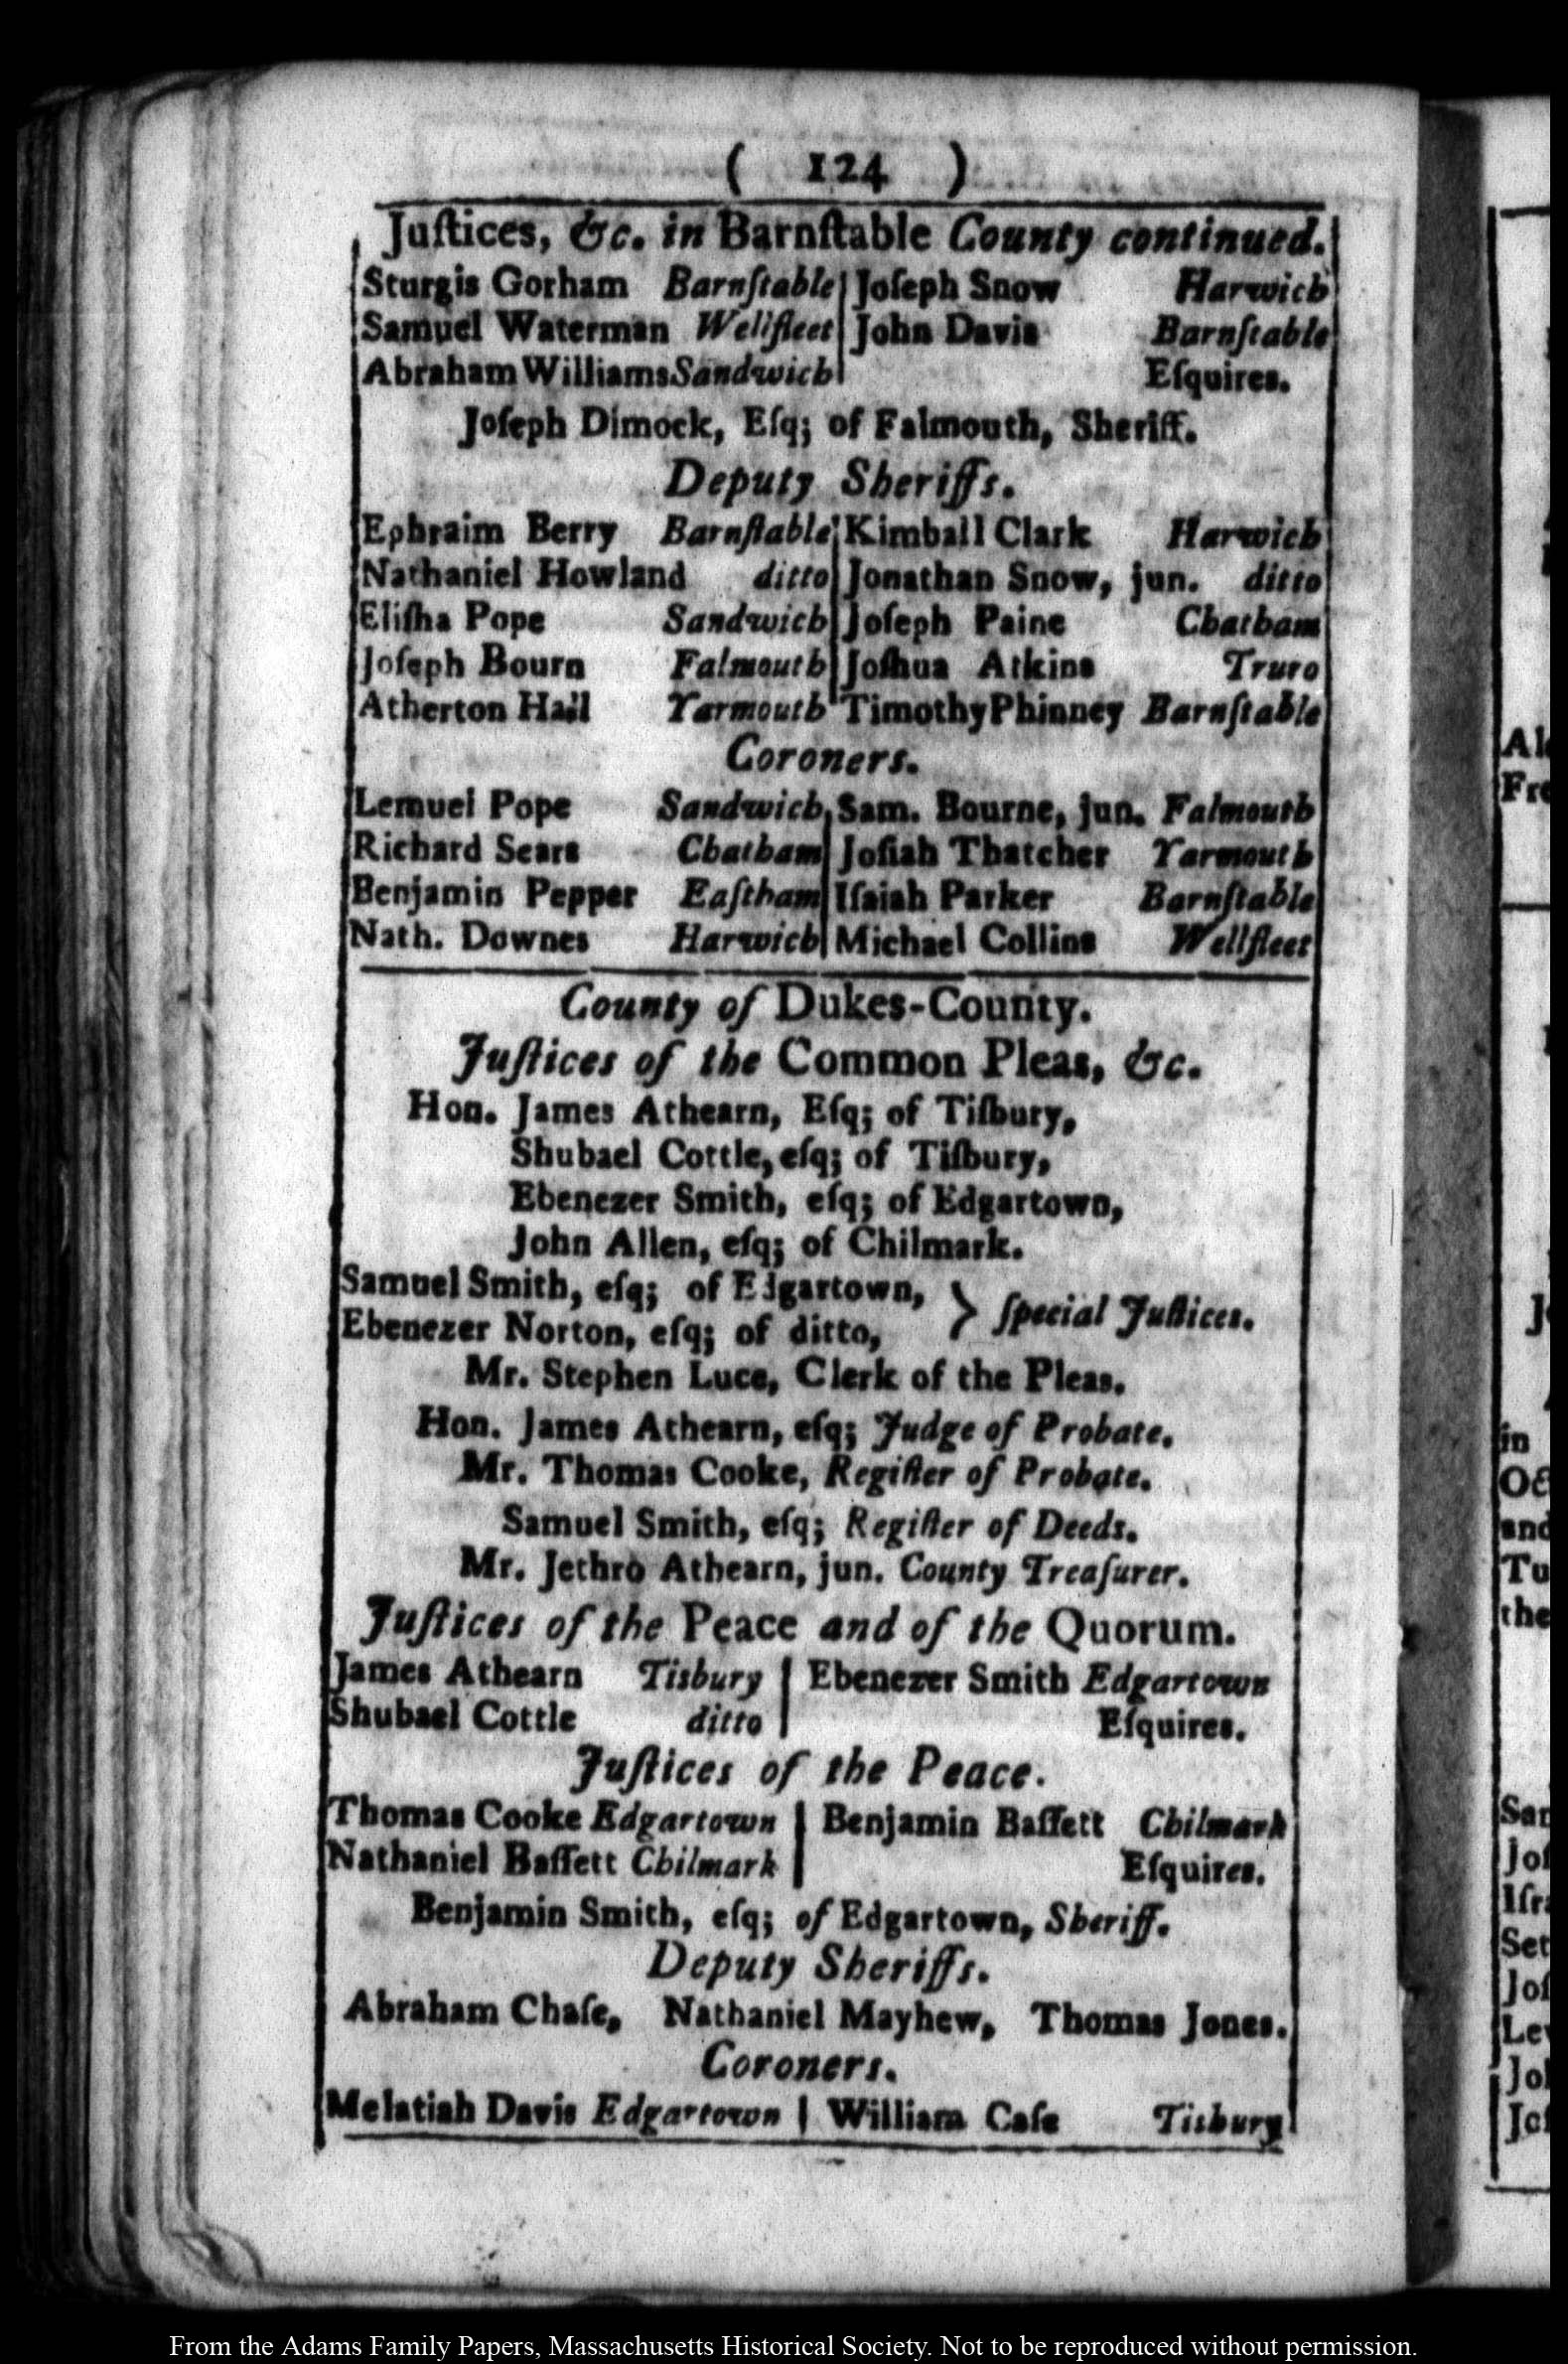 ( 124 )
Juſtices, &c. in Barnſtable County continued.
Sturgis Gorham Barnſtable | Joſeph Snow Harwich
Samuel Waterman Wellfleet | John Davis Barnſtable
Abraham Williams Sandwich | Eſquires.
Joſeph Dimock, Eſq; of Falmouth, Sheriff.
Deputy Sheriffs.
Ephraim Berry Barnſtable | Kimball Clark Harwich
Nathaniel Howland ditto | Jonathan Snow, jun. ditto
Eliſha Pope Sandwich | Joſeph Paine Chatham
Joſeph Bourn Falmouth | Joſhua Atkins Truro
Atherton Hall Yarmouth | Timothy Phinney Barnſtable
Coroners.
Lemuel Pope Sandwich | Sam. Bourne, jun. Falmouth
Richard Sears Chatham | Joſiah Thatcher Yarmouth
Benjamin Pepper Eaſtham | Iſaiah Parker Barnſtable
Nath. Downes Harwich | Michael Collins Wellfleet
County of Dukes-County.
Juſtices of the Common Pleas, &c.
Hon. James Athearn, Eſq; of Tiſbury,
Shubael Cottle, eſq; of Tiſbury,
Ebenezer Smith, eſq; of Edgartown,
John Allen, eſq; of Chilmark.
Samuel Smith, eſq; of Edgartown,
Ebenezer Norton, eſq; of ditto, } ſpecial Juſtices.
Mr. Stephen Luce, Clerk of the Pleas.
Hon. James Athearn, eſq; Judge of Probate.
Mr. Thomas Cooke, Regiſter of Probate.
Samuel Smith, eſq; Regiſter of Deeds.
Mr. Jethro Athearn, jun. County Treaſurer.
Juſtices of the Peace and of the Quorum.
James Athearn Tisbury | Ebenezer Smith Edgartown
Shubael Cottle ditto | Eſquires.
Juſtices of the Peace.
Thomas Cooke Edgartown | Benjamin Baſſett Chilmark
Nathaniel Baſſett Chilmark | Eſquires.
Benjamin Smith, eſq; of Edgartown, Sheriff.
Deputy Sheriffs.
Abraham Chaſe, Nathaniel Mayhew, Thomas Jones.
Coroners.
Melatiah Davis Edgartown | William Caſe Tisbury
in
and
Tu
the
From the Adams Family Papers, Massachusetts Historical Society. Not to be reproduced without permission.